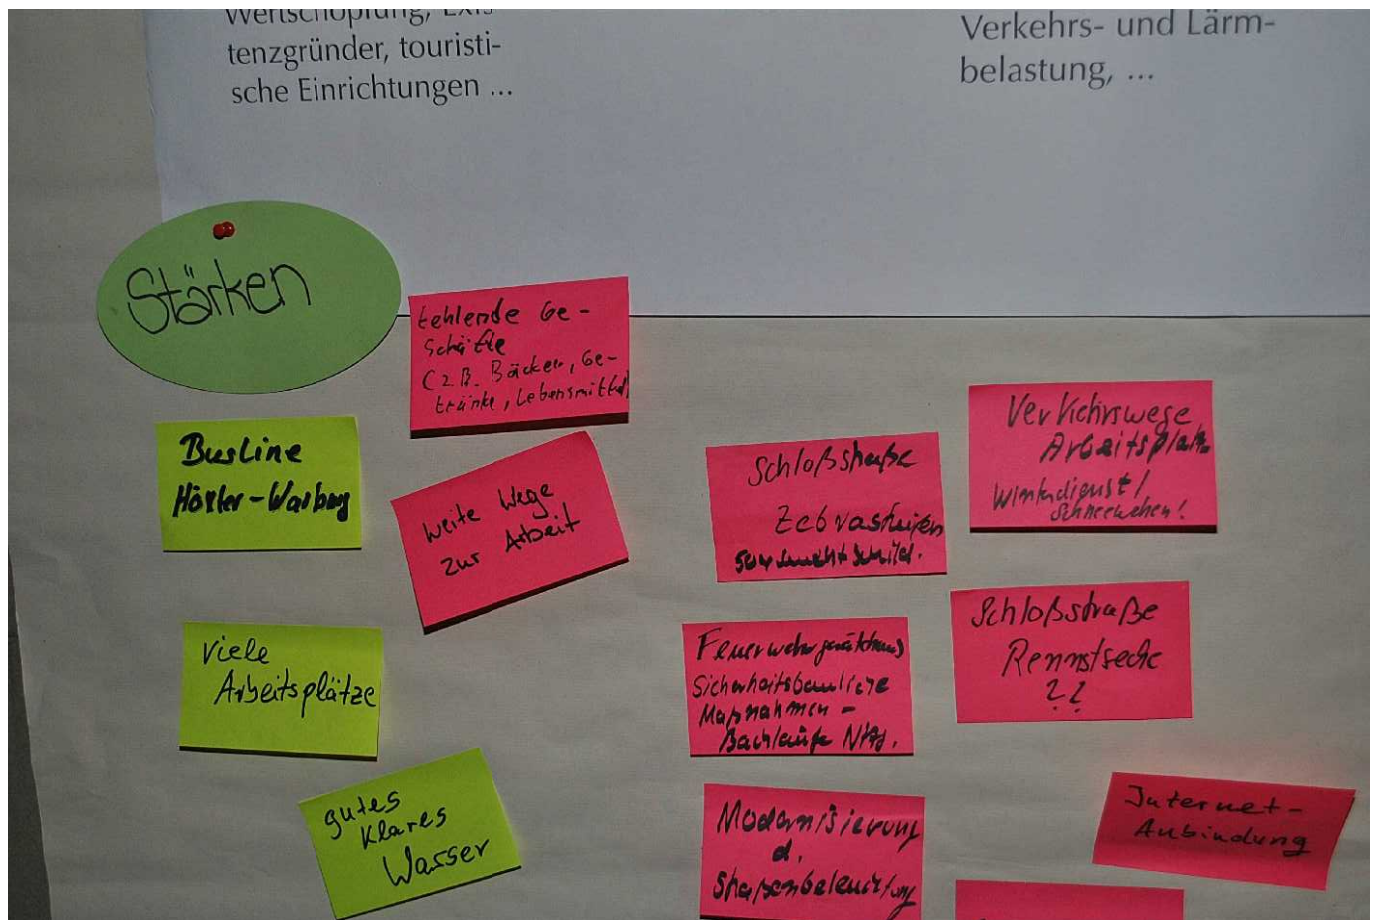 Wertschöpfung, Exis-
tenzgründer, touristi-
sche Einrichtungen ...
Verkehrs- und Lärm-
belastung, ...
Stärken
fehlende Ge-
schäfte
(z.B. Bäcker, Ge-
tränke, Lebensmittel
Busline
Höxter-Warburg
weite Wege
zur Arbeit
Schloßstraße
Zebrastreifen
Verkehrswege
Arbeitsplatz
Winterdienst/
Schneewehen!
viele
Arbeitsplätze
Feuerwehrgerätehaus
Sicherheitsbauliche
Maßnahmen -
Bachläufe
Schloßstraße
Rennstrecke
??
gutes
klares
Wasser
Modernisierung
d.
Straßenbeleuchtung
Internet-
Anbindung